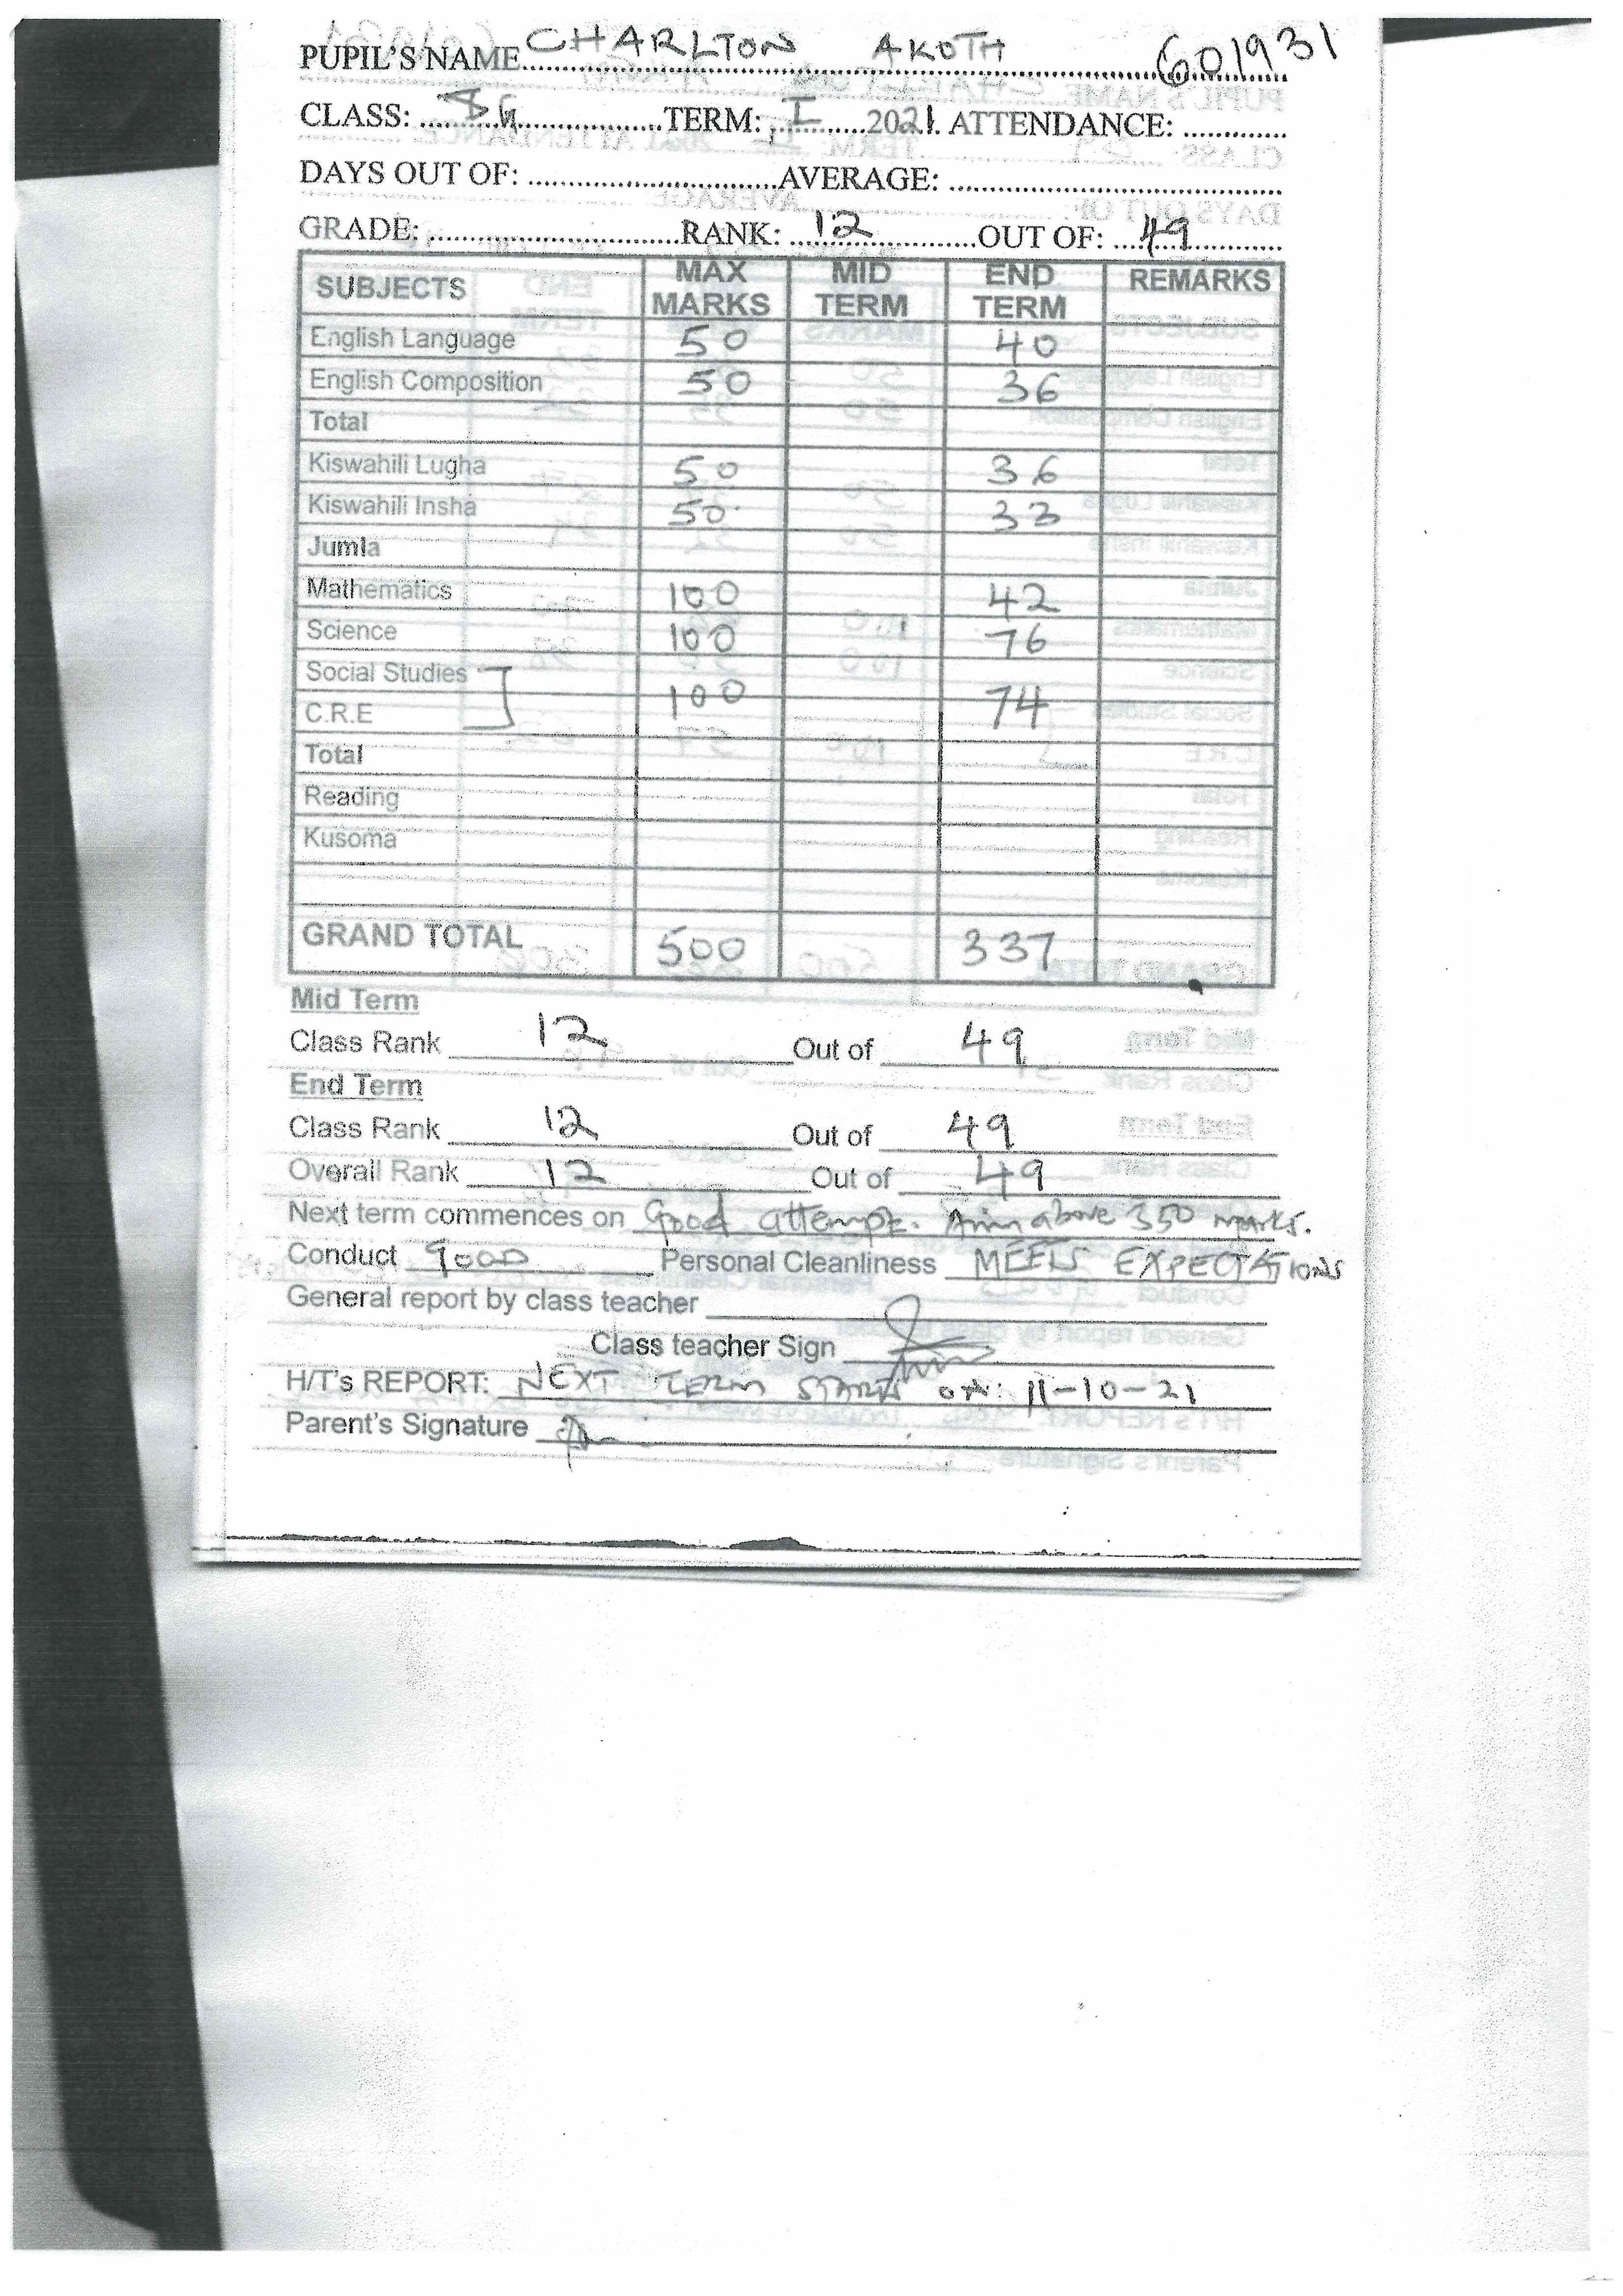 PUPIL'S NAME CHARLTON AKOTH 601931
CLASS: 8G TERM: I 2021. ATTENDANCE: ............
DAYS OUT OF: ............ AVERAGE: ............
GRADE: ............ RANK: 12 OUT OF: 49
SUBJECTS MAX MARKS MID TERM END TERM REMARKS
English Language 50 40
English Composition 50 36
Total
Kiswahili Lugha 50 36
Kiswahili Insha 50 33
Jumla
Mathematics 100 42
Science 100 76
Social Studies ] 100 74
C.R.E
Total
Reading
Kusoma
GRAND TOTAL 500 337
Mid Term
Class Rank 12 Out of 49
End Term
Class Rank 12 Out of 49
Overall Rank 12 Out of 49
Next term commences on Good attempt. Aim above 350 marks.
Conduct GOOD Personal Cleanliness MEETS EXPECTATIONS
General report by class teacher
Class teacher Sign
H/T's REPORT: NEXT TERM STARTS ON: 11-10-21
Parent's Signature